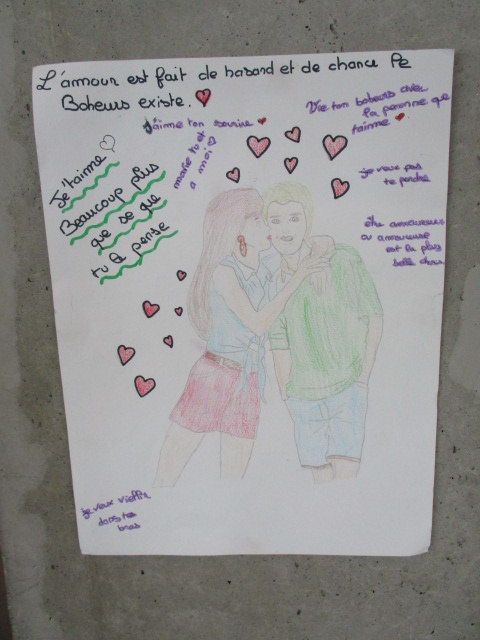 L'amour est fait de hasard et de chance Le
Boheurs existe.
J'aime ton sourire
Vie ton boheurs avec
la personne que
t'aime
marie tu et
a moi
Je t'aime
Beaucoup plus
que se que
tu à pense
je veux pas
te perdre
être amoureuse
ou amoureuse
est la plus
belle chose
je veux vieillir
dans tes
bras